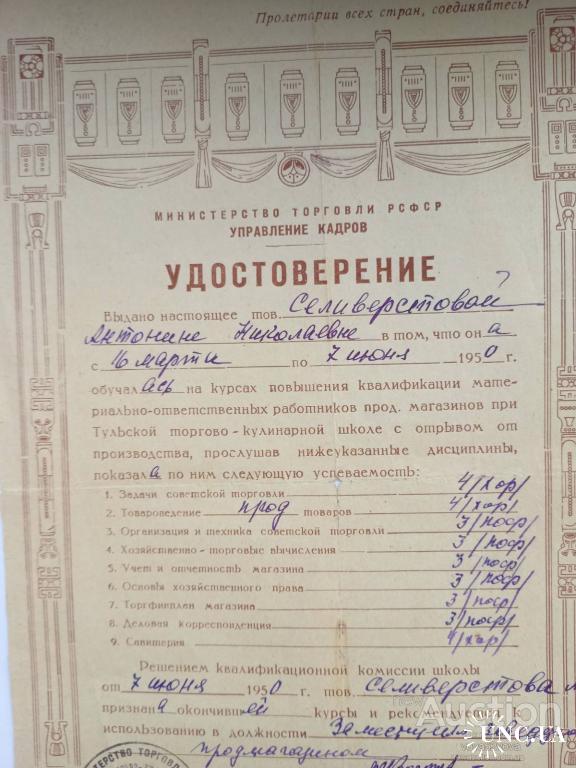 Пролетарии всех стран, соединяйтесь!
МИНИСТЕРСТВО ТОРГОВЛИ РСФСР
УПРАВЛЕНИЕ КАДРОВ
УДОСТОВЕРЕНИЕ
Выдано настоящее тов. Селиверстовой
Антонине Николаевне в том, что она
с 16 марта по 7 июня 1950 г.
обучалась на курсах повышения квалификации мате-
риально-ответственных работников прод. магазинов при
Тульской торгово-кулинарной школе с отрывом от
производства, прослушав нижеуказанные дисциплины,
показала по ним следующую успеваемость:
1. Задачи советской торговли 4/хор/
2. Товароведение прод товаров 4/хор/
3. Организация и техника советской торговли 3/поср/
4. Хозяйственно-торговые вычисления 3/поср/
5. Учет и отчетность магазина 3/поср
6. Основы хозяйственного права 3/поср/
7. Торгфинплан магазина 3/поср/
8. Деловая корреспонденция 3/поср/
9. Санитария 4/хор/
Решением квалификационной комиссии школы
от 7 июня 1950 г. тов. Селиверстова
признана окончившей курсы и рекомендуется
использованию в должности
продмагазином
СТЕРСТВО ТОРГОВ
UNC.UA